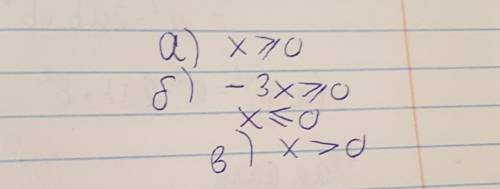 а) x ⩾ 0
б) - 3x ⩾ 0
x ⩽ 0
в) x > 0